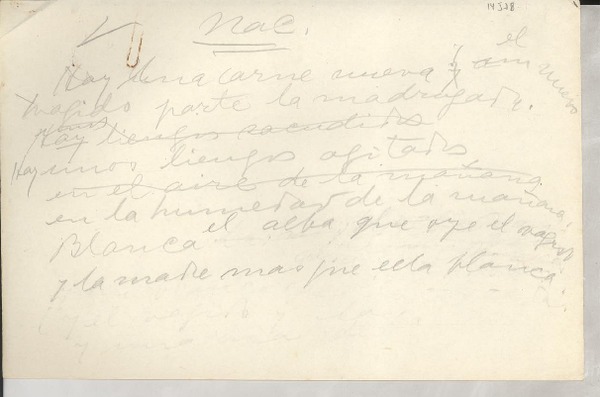 14328
Nac.
Hay una carne nueva y el un nuevo
vagido parte la madrugada.
Hay unos lienzos sacudidos
Hay unos lienzos agitados
en el aire de la mañana
en la humedad de la mañana.
Blanca el alba que oye el vagido
y la madre mas que ella blanca.